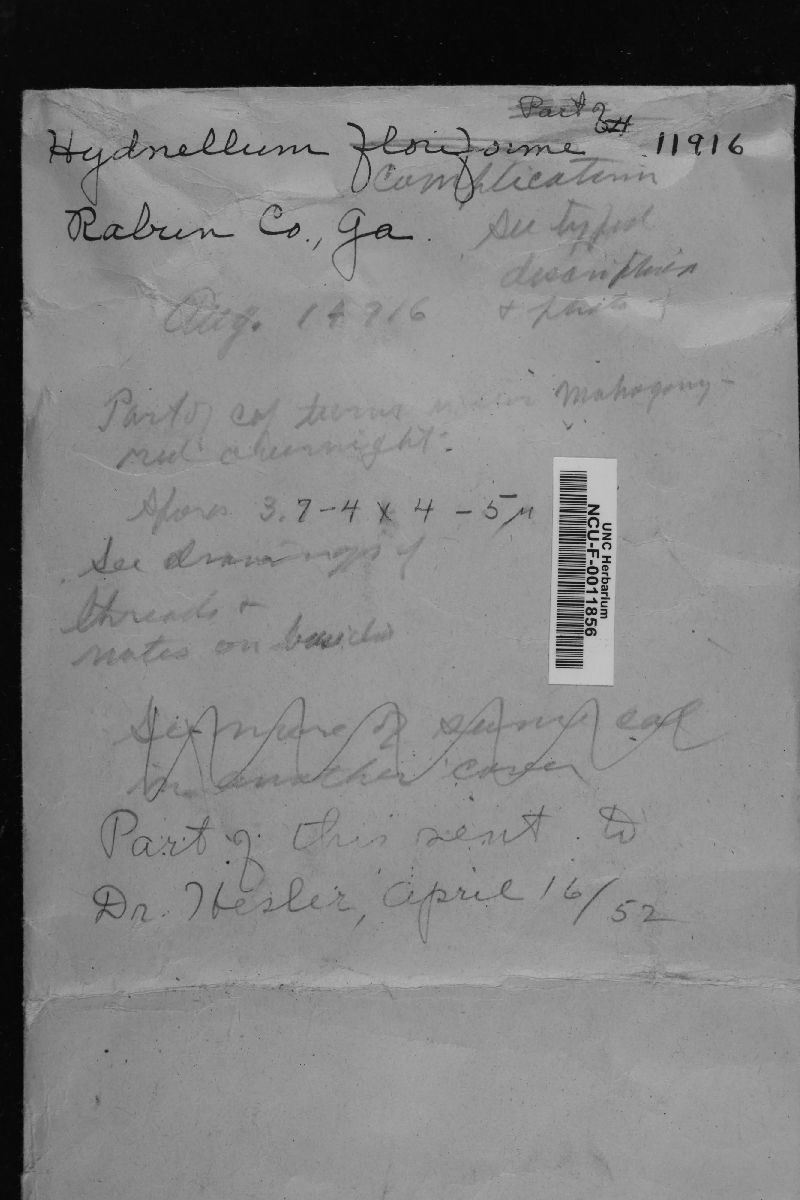 Part of
Hydnellum floriforme 11916
complicatum
Rabun Co., Ga.
See typed
description
+ photo
Aug. 1916
Part of col turns Mahogany-
red overnight.
Spores 3.7-4 x 4-5μ
See drawings of
threads +
notes on basidia
See more of same col
in another cover
Part of this sent to
Dr. Hesler, April 16/52
UNC Herbarium
NCU-F-0011856